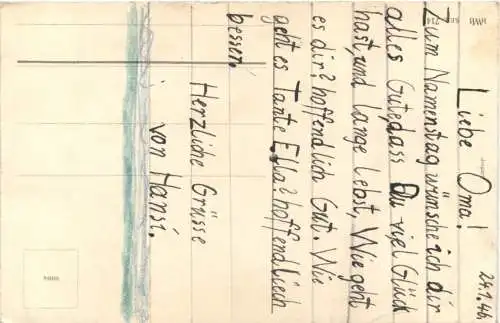 24.1.46.
Liebe Oma!
Zum Namenstag wünsche ich dir
alles Gute,dass Du viel Glück
hast,und lange lebst, Wie geht
es dir? hoffendlich Gut. Wie
geht es Tante Ella? hoffendliech
besser.
Herzliche Grüsse
von Hansi.